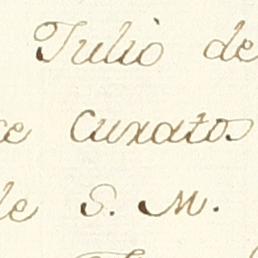 Julio de
Curatos
de S. M.